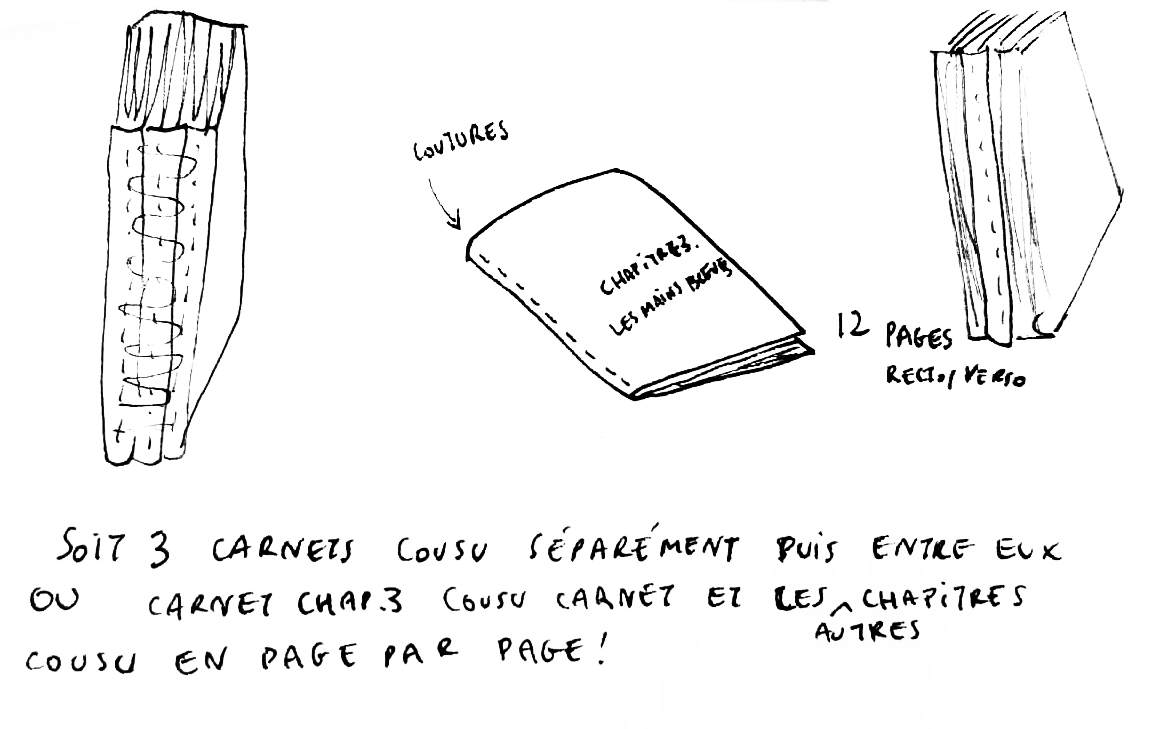 COUTURES
CHAPITRE 3.
LES MAINS BLEUES
12 PAGES
RECTO/VERSO
SOIT 3 CARNETS COUSU SÉPARÉMENT PUIS ENTRE EUX
OU CARNET CHAP.3 COUSU CARNET ET LES ^ CHAPITRES
AUTRES
COUSU EN PAGE PAR PAGE!